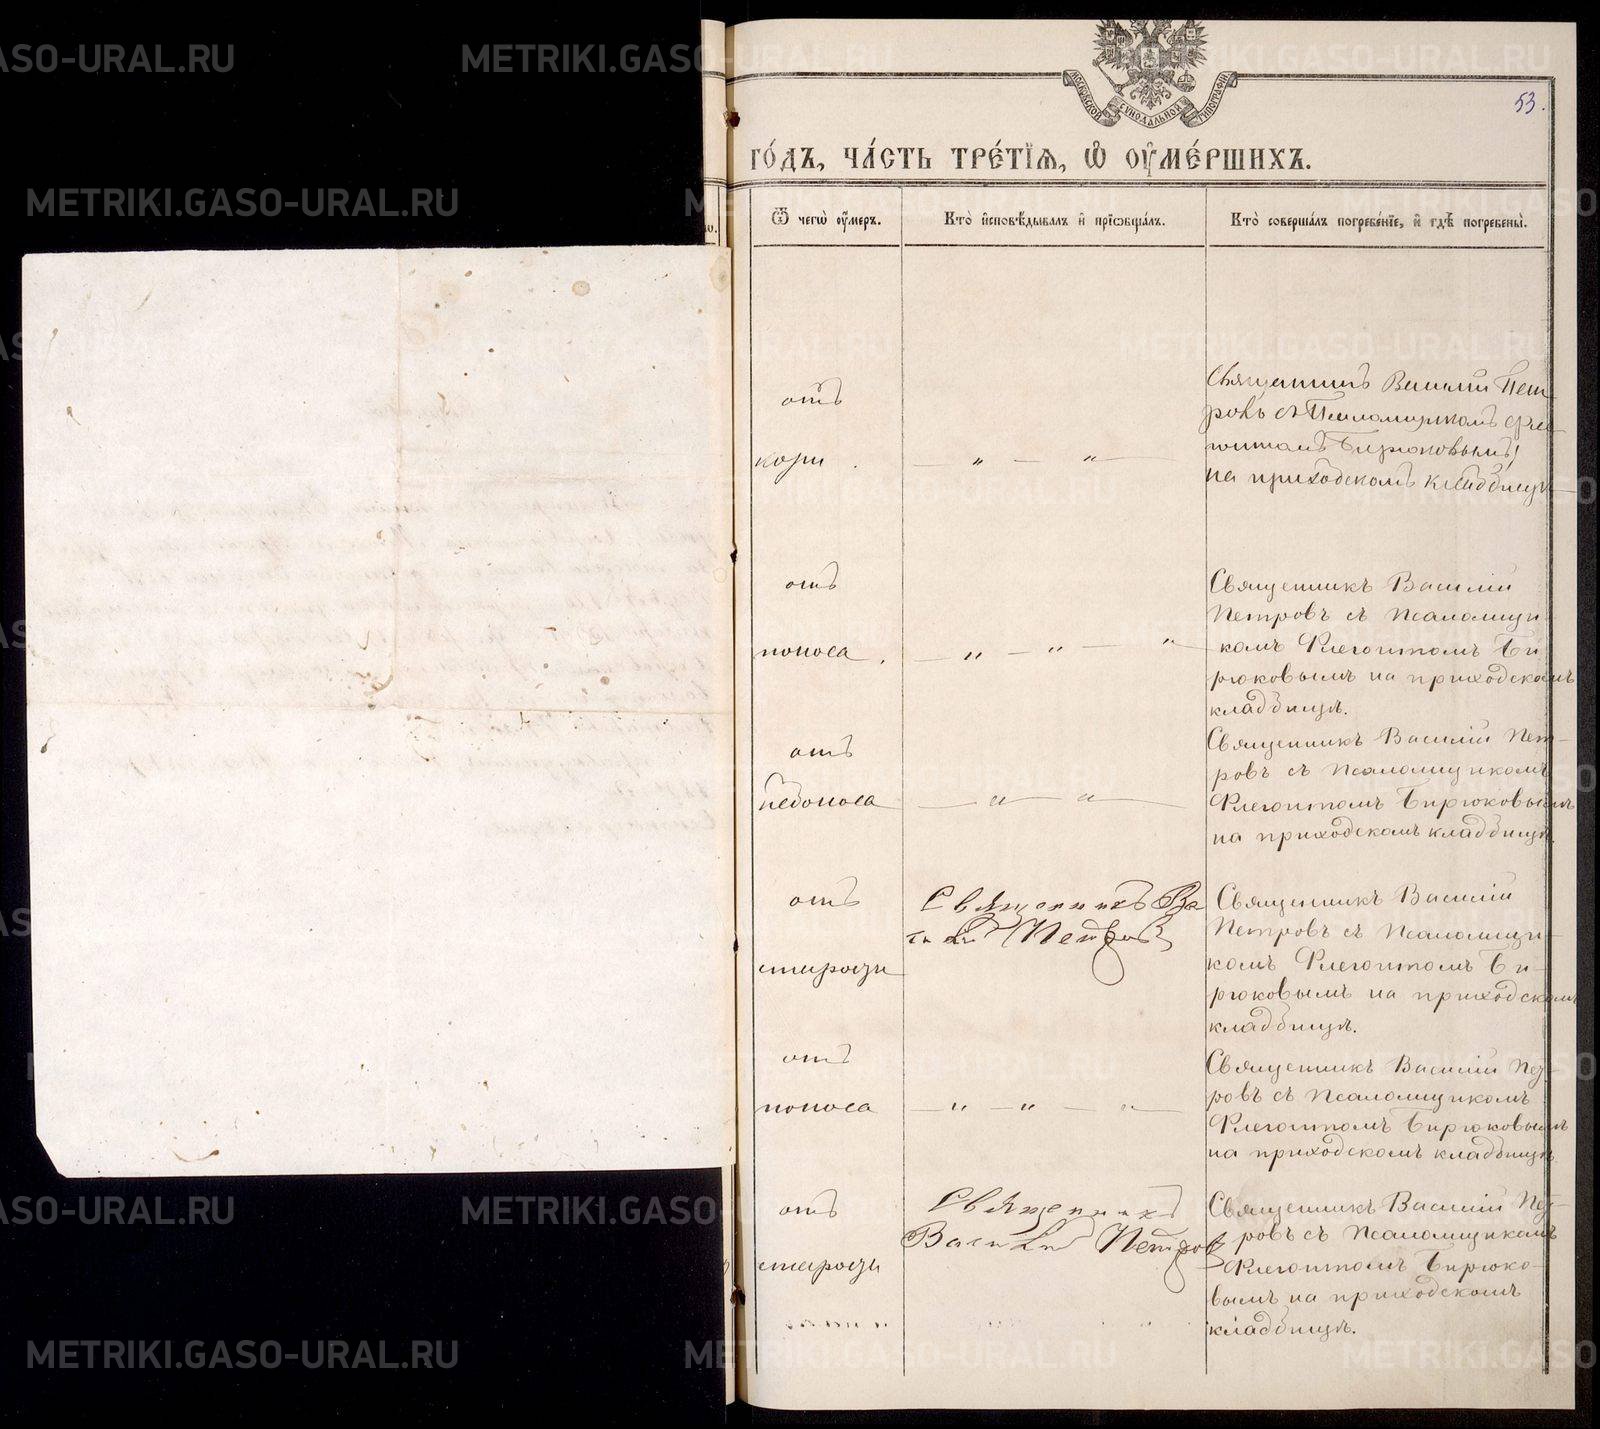 53.
МОСКОВСКОЙ СѴНОДАЛЬНОЙ ТИПОГРАФІИ
го́дъ, ча́сть тре́тїѧ, ѡ҆ ᲂу҆ме́ршихъ.
Ѿ чегѡ̀ ᲂу҆́меръ.
Кто̀ и҆сповѣ́дывалъ и҆ прїѡбща́лъ.
Кто̀ соверша́лъ погребе́нїе, и҆ гдѣ̀ погребены̀.
отъ
кори.
— „ — „ —
Священникъ Василій Пет-
ровъ съ Псаломщикомъ Фле-
гонтомъ Бирюковымъ
на приходскомъ кладбищѣ
отъ
поноса.
— „ — „ — „
Священникъ Василій
Петровъ съ Псаломщи-
комъ Флегонтомъ Би-
рюковымъ на приходскомъ
кладбищѣ.
отъ
недоноса
— „ — „ —
Священникъ Василій Пет-
ровъ съ Псаломщикомъ
Флегонтомъ Бирюковымъ
на приходскомъ кладбищѣ.
отъ
старости
Священникъ Ва-
силій Петровъ
Священникъ Василій
Петровъ съ Псаломщи-
комъ Флегонтомъ Би-
рюковымъ на приходскомъ
кладбищѣ.
отъ
поноса
— „ — „ — „ —
Священникъ Василій Пет-
ровъ съ Псаломщикомъ
Флегонтомъ Бирюковымъ
на приходскомъ кладбищѣ.
отъ
старости
Священникъ
Василій Петровъ
Священникъ Василій Пет-
ровъ съ Псаломщикомъ
Флегонтомъ Бирюко-
вымъ на приходскомъ
кладбищѣ.
METRIKI.GASO-URAL.RU